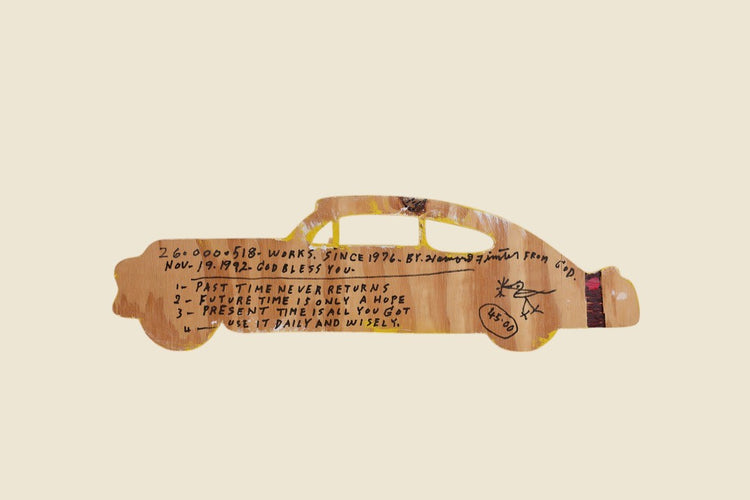 26.000.518- WORKS. SINCE 1976- BY. Howard Finster FROM GOD.
NOV. 19.1992- GOD BLESS YOU-
1- PAST TIME NEVER RETURNS
2- FUTURE TIME IS ONLY A HOPE
3- PRESENT TIME IS ALL YOU GOT
4- USE IT DAILY AND WISELY.
45.00